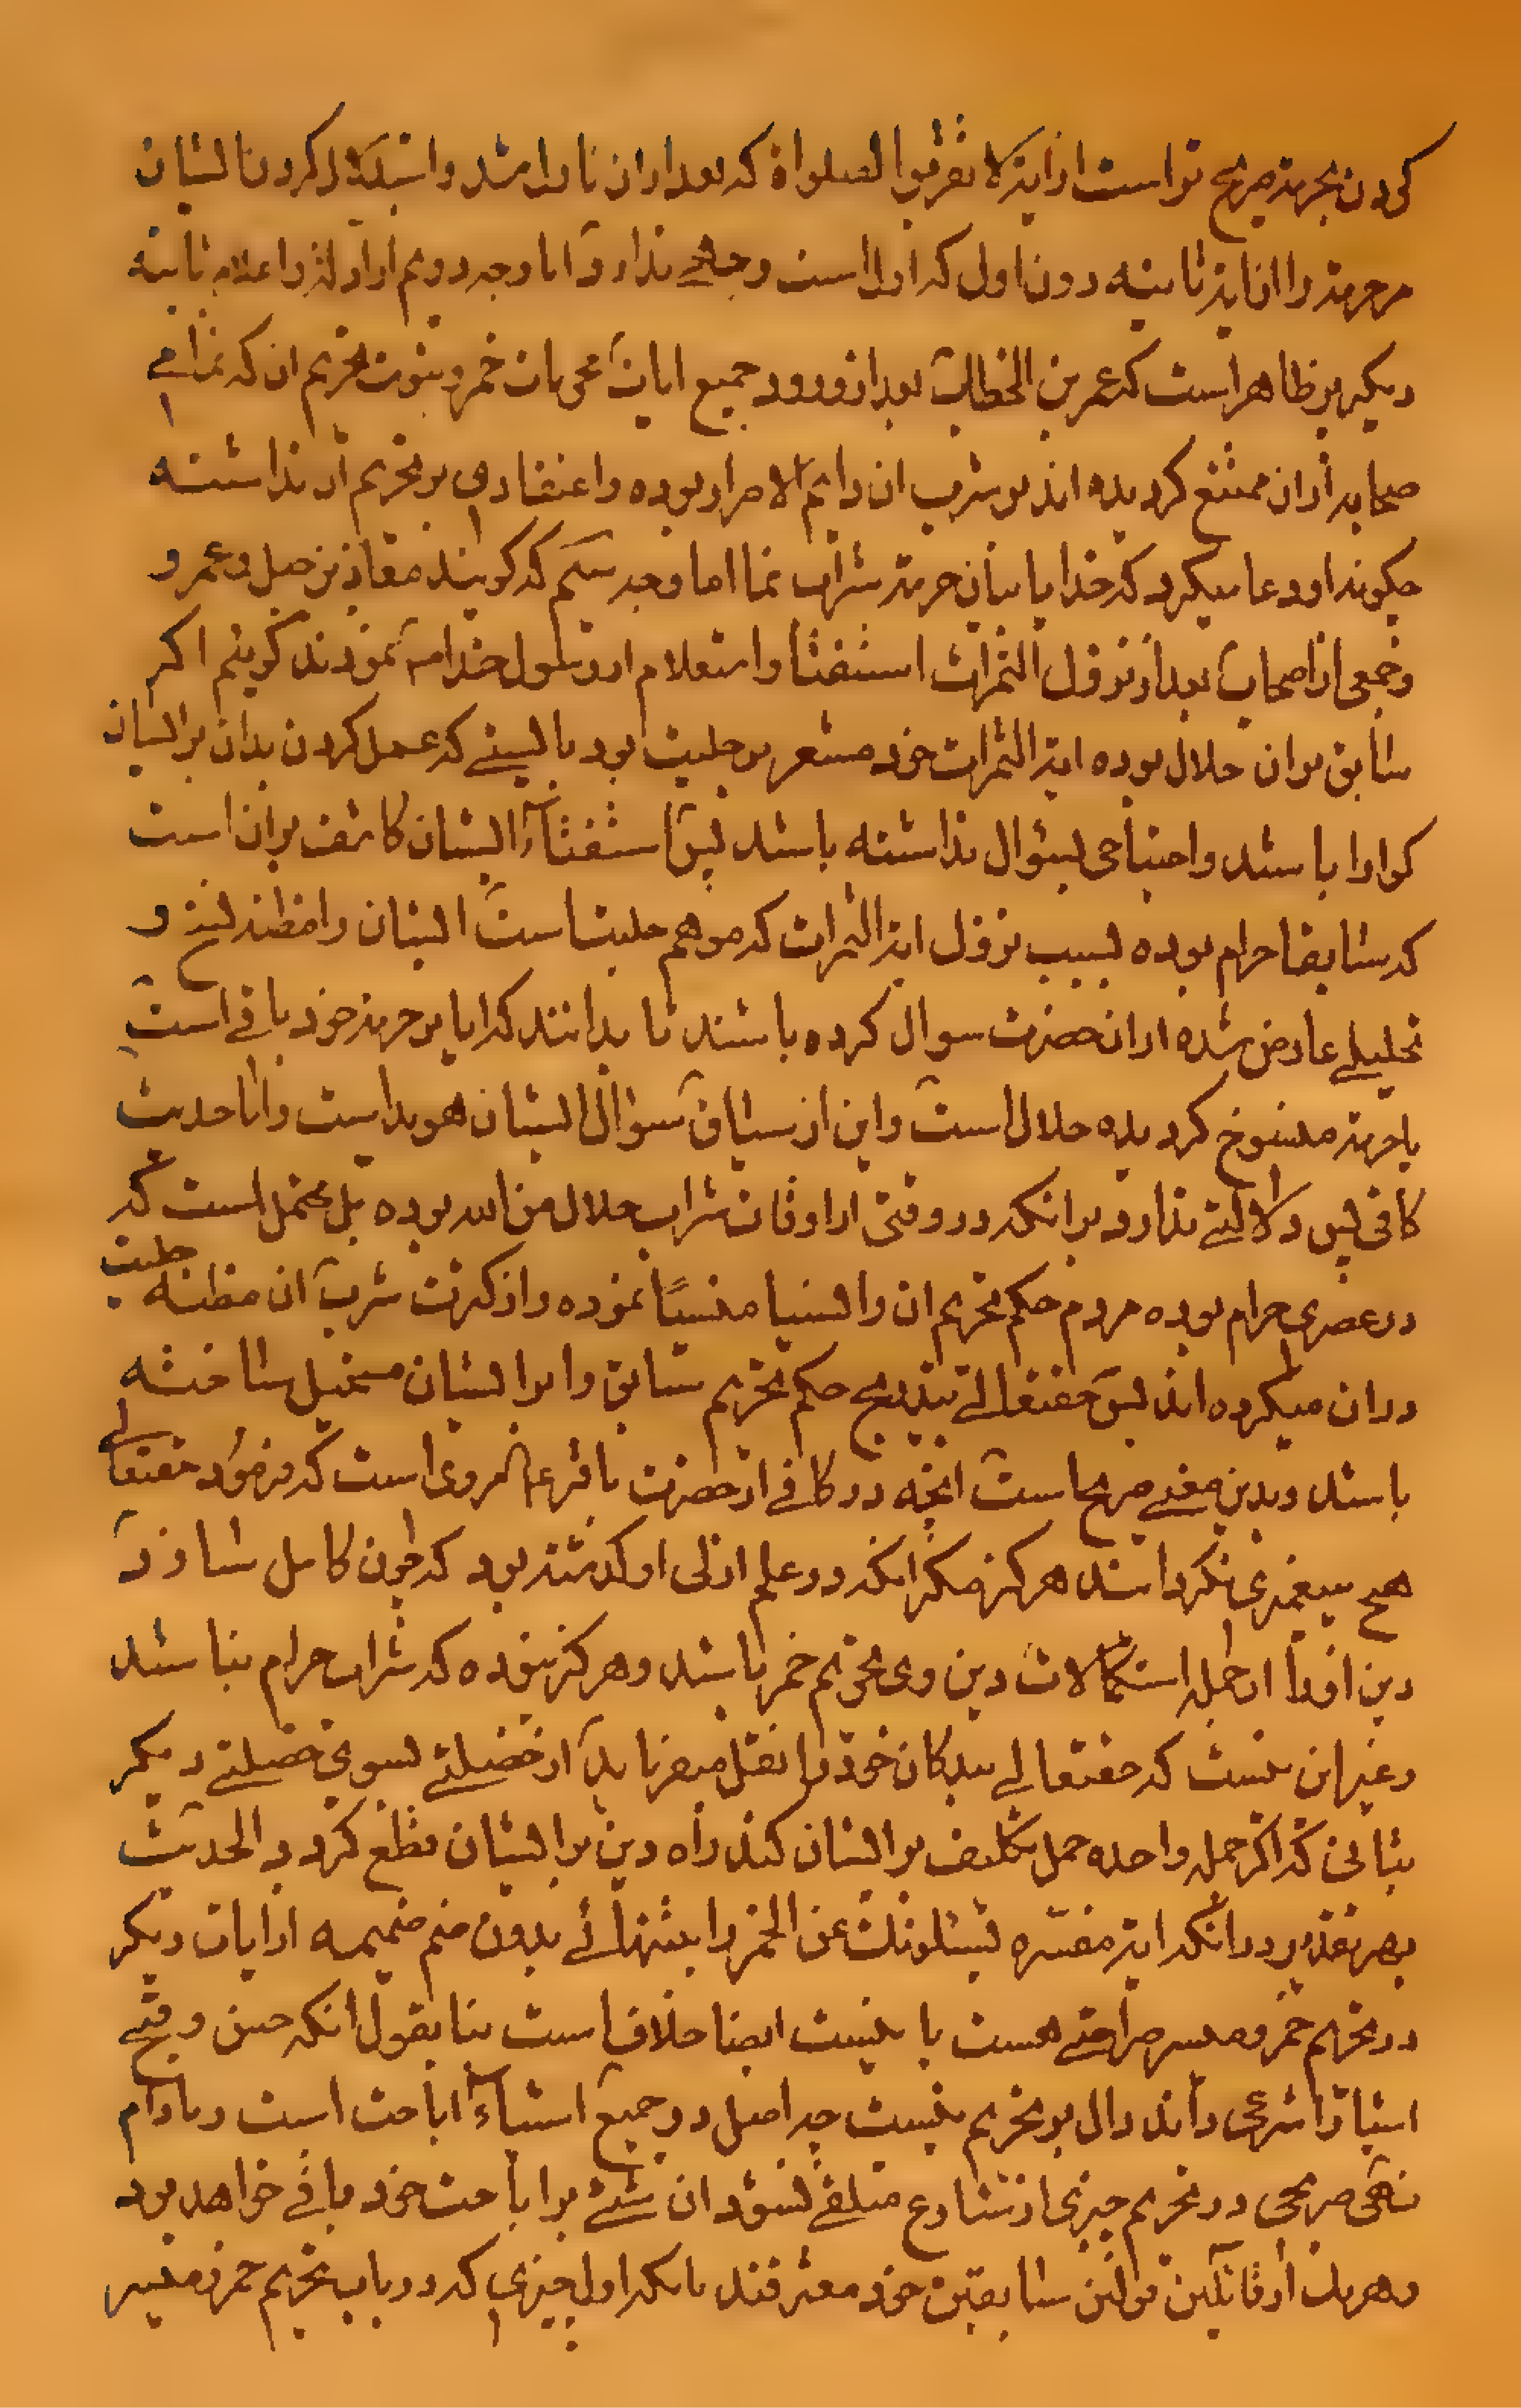 کردن بحرمة صریح تر است از آیة لا تقربوا الصلواة که بعد از ان نازل شد و استدلال کردن ایشان
مر حرمة را از آیة ثانیه دون اول که اولی است وجهی ندارد اما وجه دویم از ادله و اعلام ثانیه
دیگر پر ظاهر است که عمر بن الخطاب بعد از ورود جمیع ایات محرمات خمر و ثبوت تحریم ان که تمامی
صحابه از ان ممتنع کردیده اند بر شرب ان دایم الاصرار بوده و اعتقادی بر تحریم ان نداشته
چکونه او دعا میکرد که خدایا بیان حرمة شراب نما اما وجه سیم که کویند معاذ بن جبل و عمر و
و جمعی از اصحاب بعد از نزول الثمرات استفتا و استعلام از رسول خدا ص نمودند کوییم اکر
سابق بر ان حلال بوده ایة الثمرات خود مشعر بر حلیت بود بایستی که عمل کردن بدان بر ایشان
کوارا باشد و احتیاجی بسؤال نداشته باشد پس استفتاء ایشان کاشف بر ان است
که سابقا حرام بوده بسبب نزول ایة الثمرات که موهم حلیت است ایشان را مظنه نسخ و
تحلیلی عارض شده از ان حضرت سوال کرده باشند تا بدانند که ایا بر حرمة خود باقی است
یا حرمة منسوخ کردیده حلال است و این از سیاق سوال ایشان هویداست و اما حدیث
کافی پس دلالتی ندارد بر انکه در وقتی از اوقات شراب حلال من الله بوده بل محتمل است که
در عصری حرام بوده مردم حکم تحریم ان را نسیا منسیًا نموده و از کثرت شرب ان مظنه حلیت
در ان میکرده اند پس حقتعالی بتدریج حکم تحریم سابق را بر ایشان مسجل ساخته
باشد و بدین معنی صریح است انچه در کافی از حضرت باقر ع مروی است که فرمود حقتعالی
هیچ پیغمبری نکرداند هرکز مکر انکه در علم ازلی او کذشته بود که چون کامل سازد
دین او را از جمله استکمالات دین وی تحریم خمر باشد و هرکز نبوده که شراب حرام نباشد
و غیر این نیست که حقتعالی بندکان خود را نقل میفرماید از خصلتی بسوی خصلتی دیکر
بتانی که اکر جمله واحده حمل تکلیف بر ایشان کند راه دین بر ایشان قطع کردد الحدیث
بهر تقدیر در انکه ایة مفسره یسئلونک عن الخمر را بتنهائی بدون ضم ضمیمه از ایات دیکر
در تحریم خمر و میسر صراحتی هست یا نیست ایضا خلاف است بنا بقول انکه حسن و قبح
اشیا را شرعی داند دال بر تحریم نیست چه اصل در جمیع اشیاء اباحت است و مادام
نهی صریحی در تحریم چیزی از شارع متلقی نشود ان شیئ بر اباحت خود باقی خواهد بود
و هر یک از قائلین قولین سابقین خود معترفند بانکه اول چیزی که در باب تحریم خمر و میسر